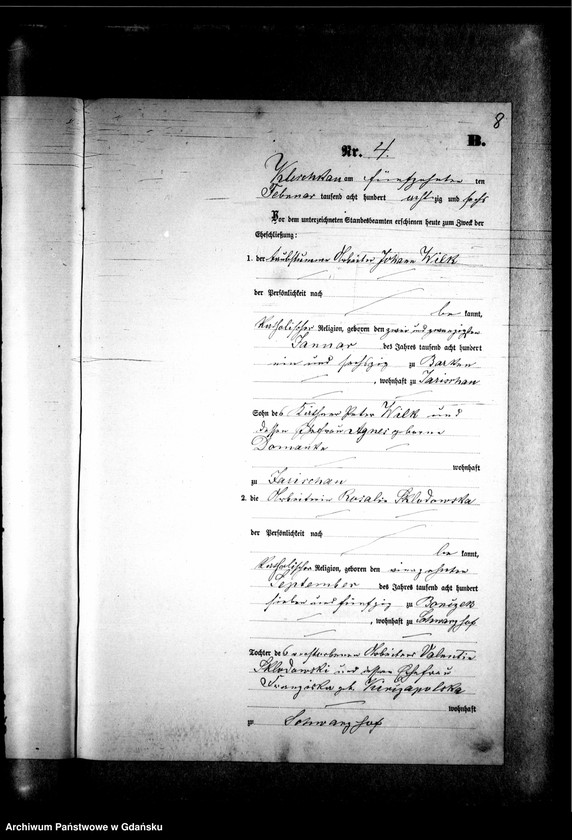 8
B.
Nr. 4.
am fünfzehnten ten
Februar tausend acht hundert achtzig und sechs
Vor dem unterzeichneten Standesbeamten erschienen heute zum Zweck der
Eheschließung:
1. der taubstumme Arbeiter Johann Wilk
der Persönlichkeit nach
be kannt,
katholischer Religion, geboren den zwei und zwanzigsten
Januar des Jahres tausend acht hundert
ein und sechszig zu Barken
, wohnhaft zu Jarischau
Sohn des Käthner Peter Wilk und
dessen Ehefrau Agnes geborene
Domanke
wohnhaft
zu Jarischau
2. die Arbeiterin Rosalie Sklodowska
der Persönlichkeit nach
be kannt,
katholischer Religion, geboren den vierzehnten
September des Jahres tausend acht hundert
sieben und fünfzig zu
, wohnhaft zu Schwarzhof
Tochter des verstorbenen Arbeiters Valentin
Sklodowski und dessen Ehefrau
Franziska gb.
wohnhaft
zu Schwarzhof
Archiwum Państwowe w Gdańsku